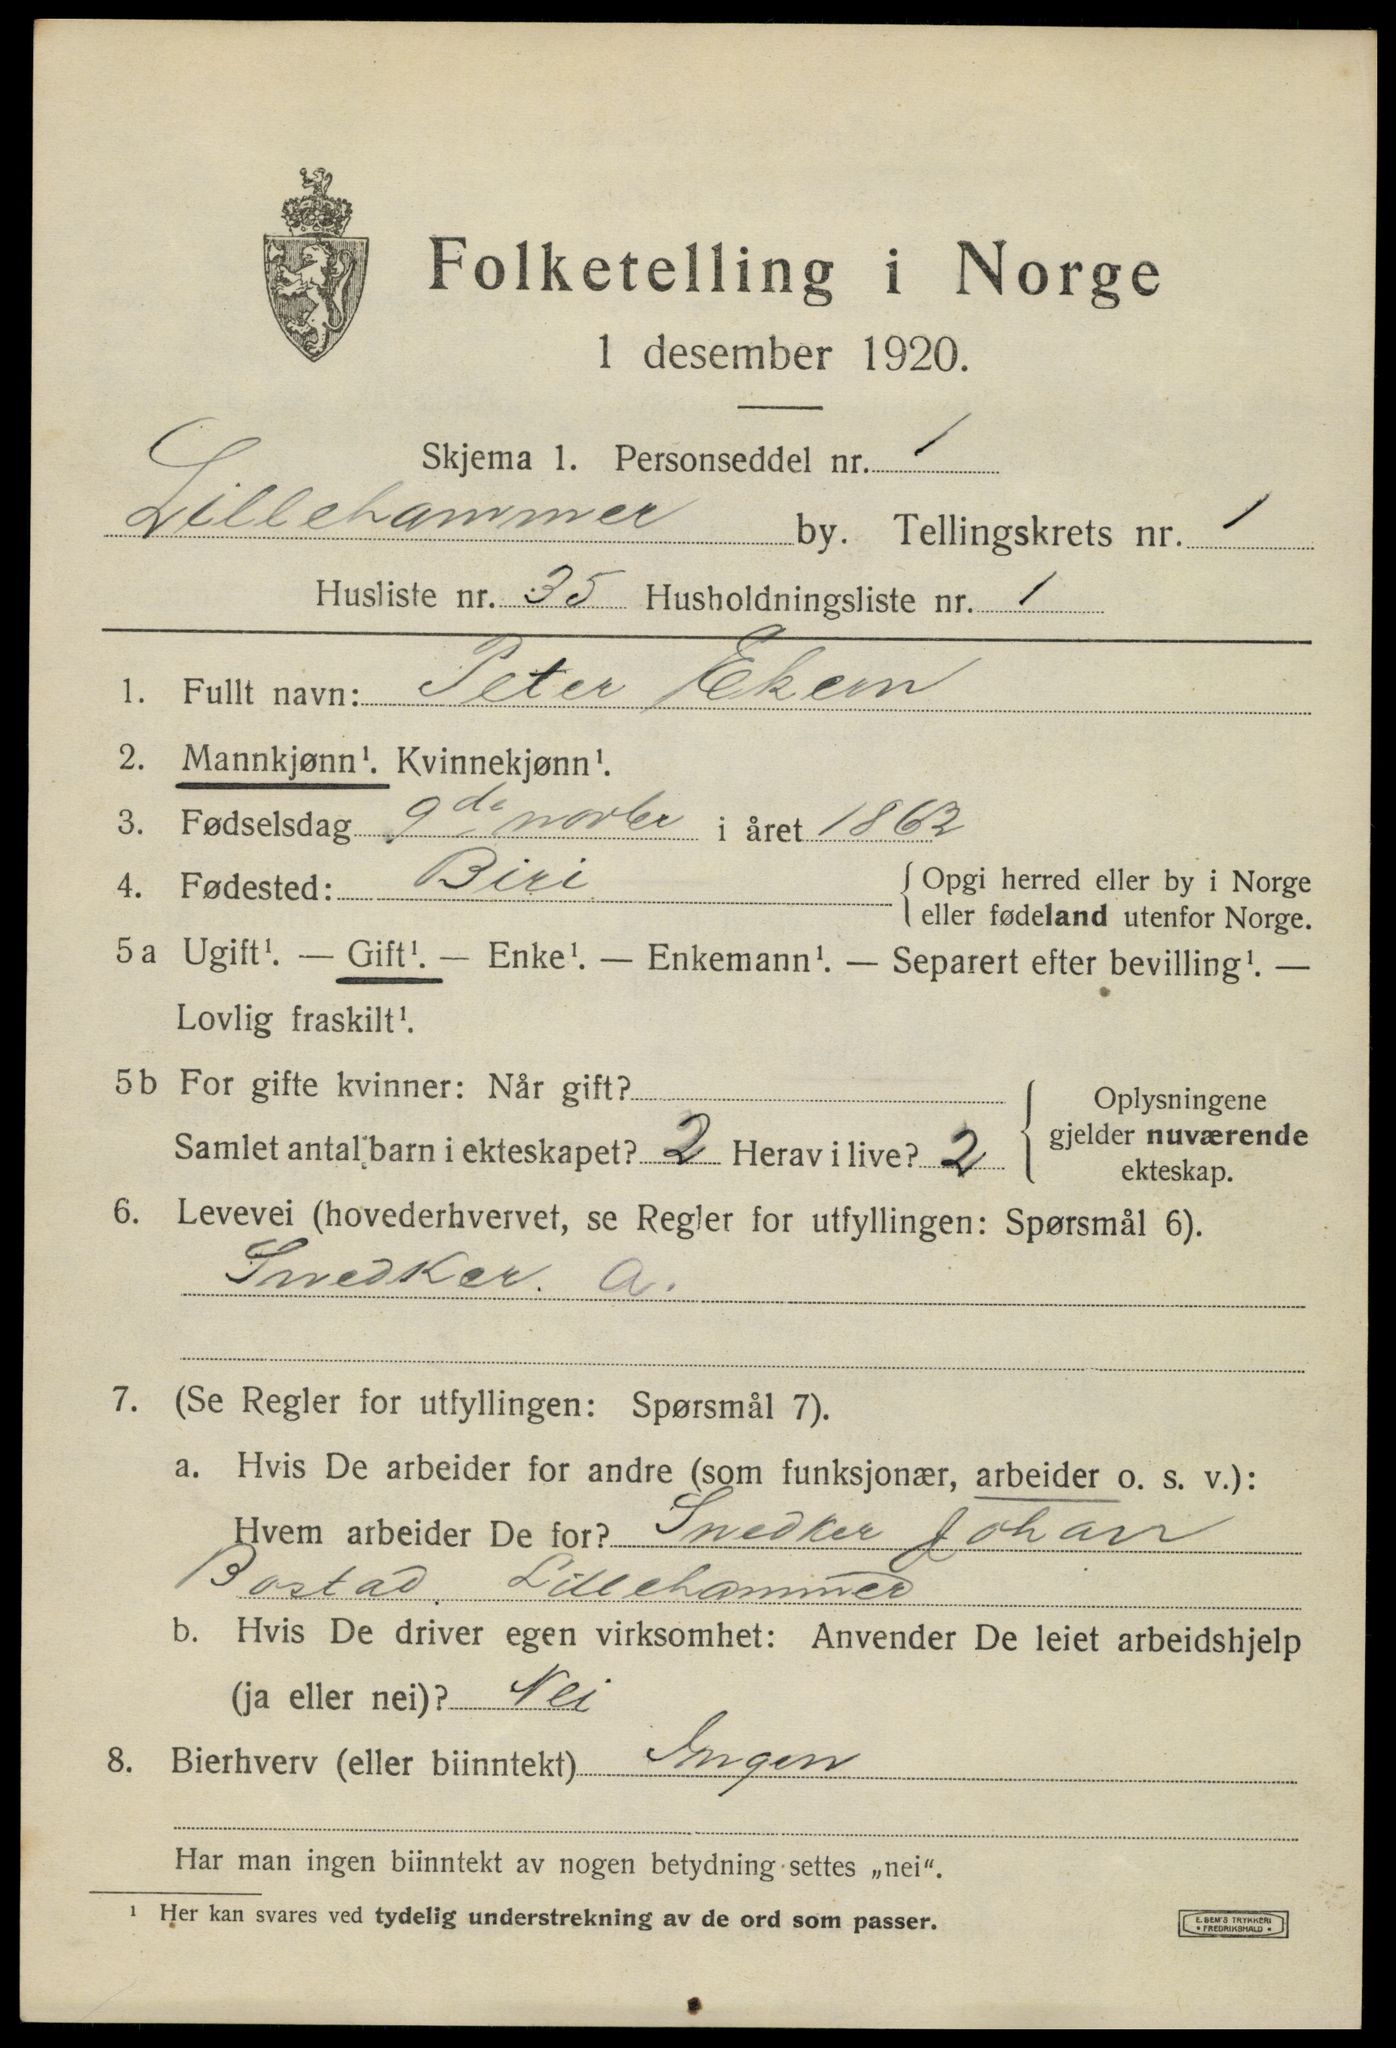 Folketelling i Norge
1 desember 1920.
Skjema 1. Personseddel nr. 1
Lillehammer by. Tellingskrets nr. 1
Husliste nr. 35 Husholdningsliste nr. 1
1. Fullt navn: Peter Ekern
2. Mannkjønn¹. Kvinnekjønn¹.
3. Fødselsdag 9de novber i året 1862
4. Fødested: Biri { Opgi herred eller by i Norge
eller fødeland utenfor Norge.
5a Ugift¹. — Gift¹. — Enke¹. — Enkemann¹. — Separert efter bevilling¹. —
Lovlig fraskilt¹.
5b For gifte kvinner: Når gift?
Samlet antal barn i ekteskapet? 2 Herav i live? 2
Oplysningene
gjelder nuværende
ekteskap.
6. Levevei (hovederhvervet, se Regler for utfyllingen: Spørsmål 6).
Snedker. a.
7. (Se Regler for utfyllingen: Spørsmål 7).
a. Hvis De arbeider for andre (som funksjonær, arbeider o. s. v.):
Hvem arbeider De for? Snedker Johan
Bostad, Lillehammer
b. Hvis De driver egen virksomhet: Anvender De leiet arbeidshjelp
(ja eller nei)? Nei
8. Bierhverv (eller biinntekt) Ingen
Har man ingen biinntekt av nogen betydning settes „nei“.
¹ Her kan svares ved tydelig understrekning av de ord som passer.
E. SEM'S TRYKKERI
• FREDRIKSHALD •